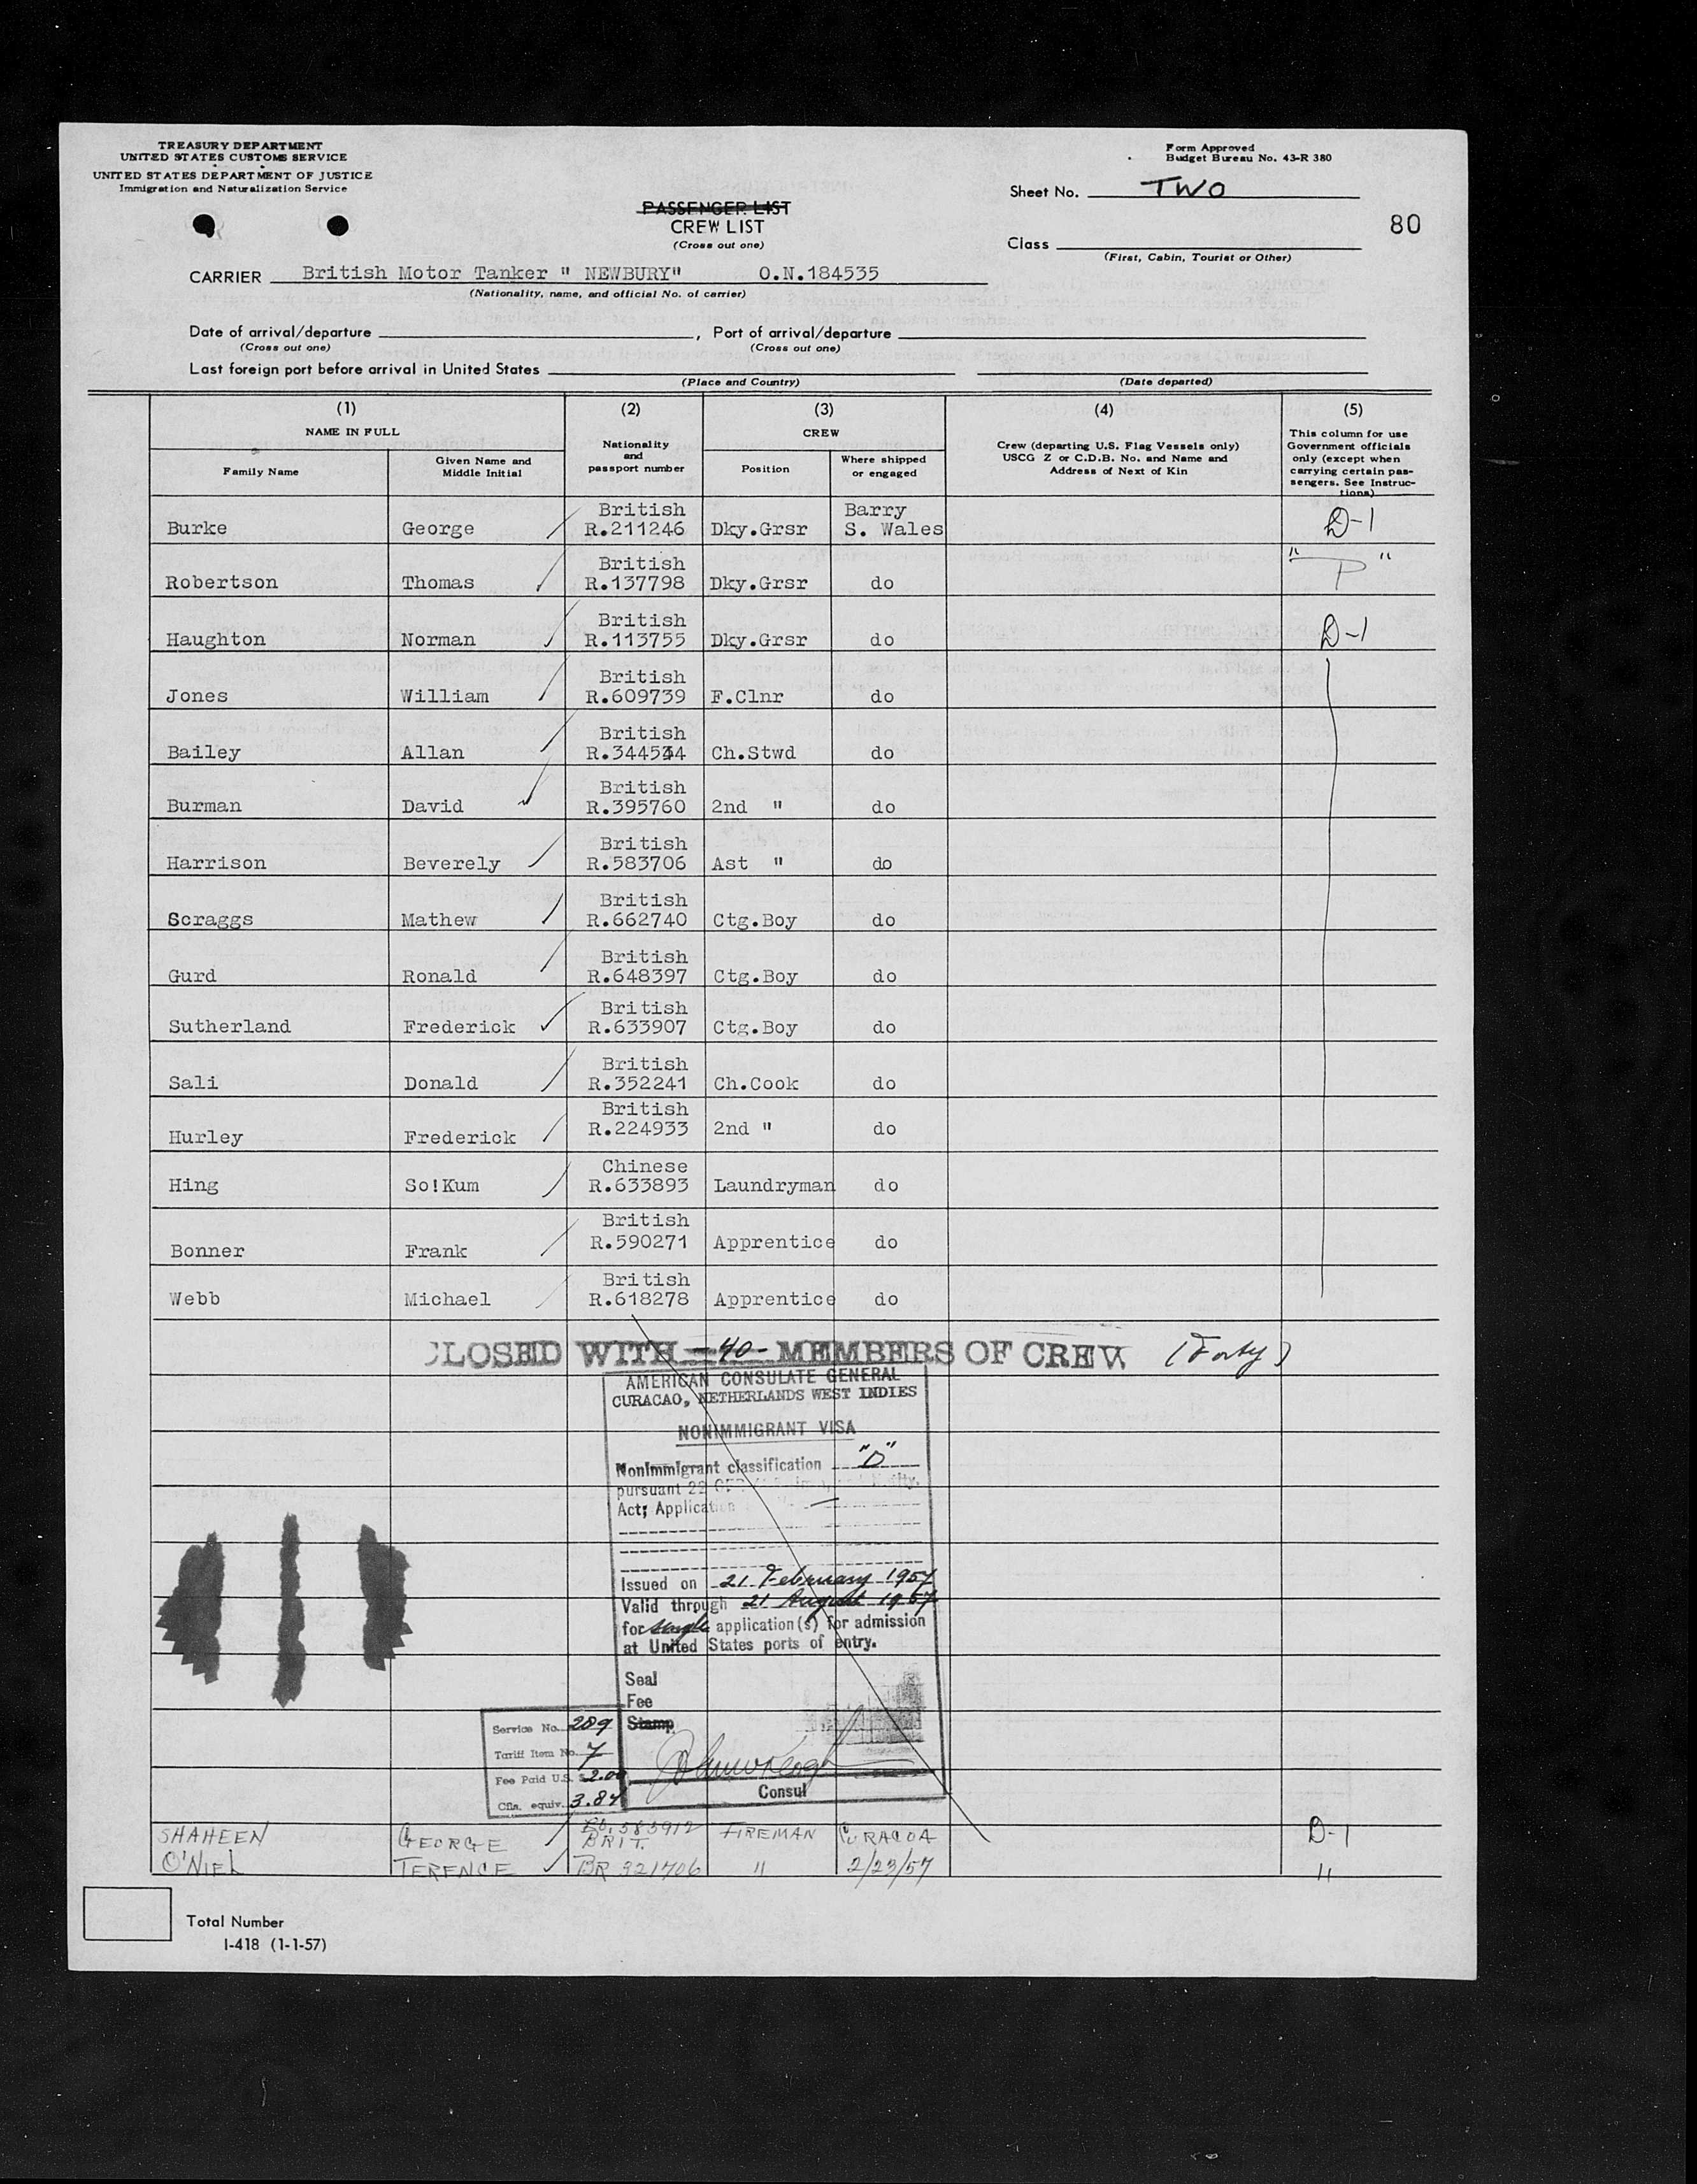 TREASURY DEPARTMENT
UNITED STATES CUSTOMS SERVICE
UNITED STATES DEPARTMENT OF JUSTICE
Immigration and Naturalization Service
Form Approved
Budget Bureau No. 43-R 380
Sheet No. TWO
PASSENGER LIST
CREW LIST
(Cross out one)
80
Class
(First, Cabin, Tourist or Other)
CARRIER British Motor Tanker " NEWBURY" O.N.184535
(Nationality, name, and official No. of carrier)
Date of arrival/departure , Port of arrival/departure
(Cross out one) (Cross out one)
Last foreign port before arrival in United States
(Place and Country) (Date departed)
(1) (2) (3) (4) (5)
NAME IN FULL
Family Name
Given Name and Middle Initial
Nationality and passport number
CREW
Position
Where shipped or engaged
Crew (departing U.S. Flag Vessels only)
USCG Z or C.D.B. No. and Name and
Address of Next of Kin
This column for use
Government officials
only (except when
carrying certain pas-
sengers. See Instruc-
tions)
British Barry
Burke George R.211246 Dky.Grsr S. Wales D-1
British
Robertson Thomas R.137798 Dky.Grsr do " P "
British
Haughton Norman R.113755 Dky.Grsr do D-1
British
Jones William R.609739 F.Clnr do
British
Bailey Allan Ch.Stwd do
British
Burman David R.395760 2nd " do
British
Harrison Beverely R.583706 Ast " do
British
Scraggs Mathew R.662740 Ctg.Boy do
British
Gurd Ronald R.648397 Ctg.Boy do
British
Sutherland Frederick R.633907 Ctg.Boy do
British
Sali Donald R.352241 Ch.Cook do
British
Hurley Frederick R.224933 2nd " do
Chinese
Hing So!Kum R.633893 Laundryman do
British
Bonner Frank R.590271 Apprentice do
British
Webb Michael R.618278 Apprentice do
CLOSED WITH -40- MEMBERS OF CREW (Forty)
AMERICAN CONSULATE GENERAL
CURACAO, NETHERLANDS WEST INDIES
NONIMMIGRANT VISA
Nonimmigrant classification "D"
pursuant 22
Act; Application
Issued on 21 February 1957
Valid through 21 August 1957
for single application(s) for admission
at United States ports of entry.
Seal
Fee
Stamp
Consul
Service No. 289
Tariff Item No. 7
Fee Paid U.S. $2.00
Cfls. equiv. 3.84
SHAHEEN GEORGE BRIT. FIREMAN CURACOA D-1
O'NIEL TERENCE BR 321706 " 2/23/57 "
Total Number
I-418 (1-1-57)